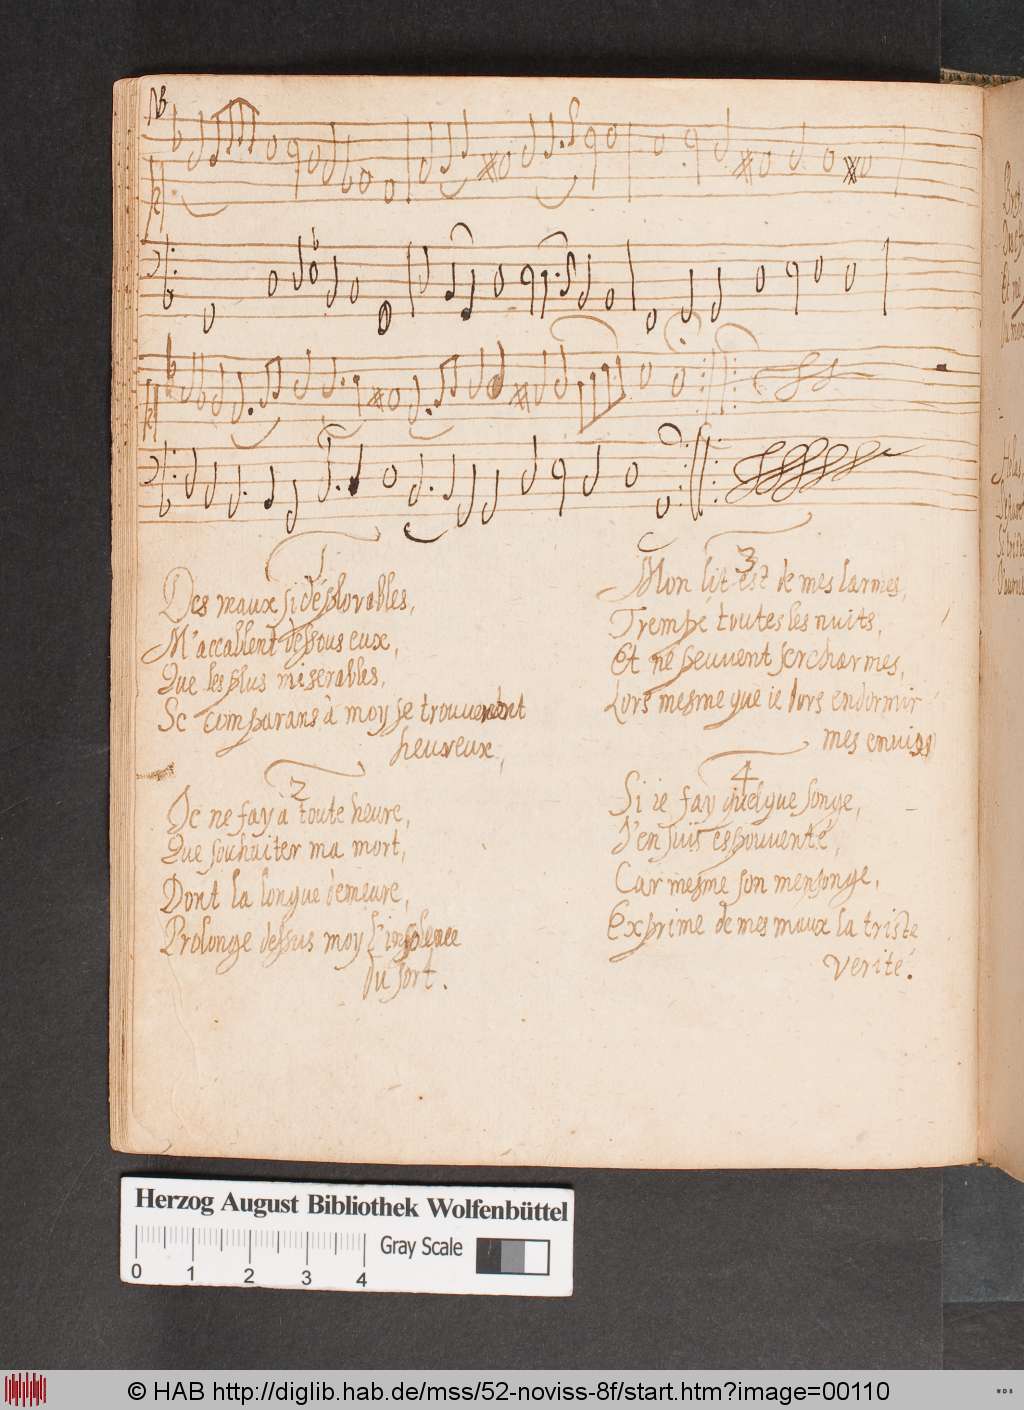 NB
1
Des maux si déplorables,
M'accablent dessous eux,
Que les plus miserables,
Se comparans à moy se trouveront
heureux,
2
Je ne fay à toute heure,
Que souhaiter ma mort,
Dont la longue demeure,
Prolonge dessus moy l'insolence
du sort.
3
Mon lit est de mes larmes,
Trempé toutes les nuits,
Et ne peuvent ser charmes,
Lors mesme que ie dors endormir
mes ennuis
4
Si ie fay quelque songe,
J'en suis espouventé,
Car mesme son mensonge,
Exprime de mes maux la triste
verité.
Herzog August Bibliothek Wolfenbüttel
0 1 2 3 4
Gray Scale
© HAB http://diglib.hab.de/mss/52-noviss-8f/start.htm?image=00110